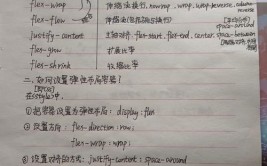 flex-wrap 伸缩流换行, nowrap, wrap, wrap-reverse, column-
reverse
flex-flow 伸缩流(
justify-content 主轴对齐, flex-start, flex-end, center, space-between
space-around
flex-grow 扩展比率
flex-shrink 收缩比率
二. 如何设置弹性布局容器?
在style中:
① 把容器设置为弹性布局: display: flex
② 设置方向: flex-direction: row;
flex-wrap: wrap;
③ 设置对齐的方式: justify-content: space-around